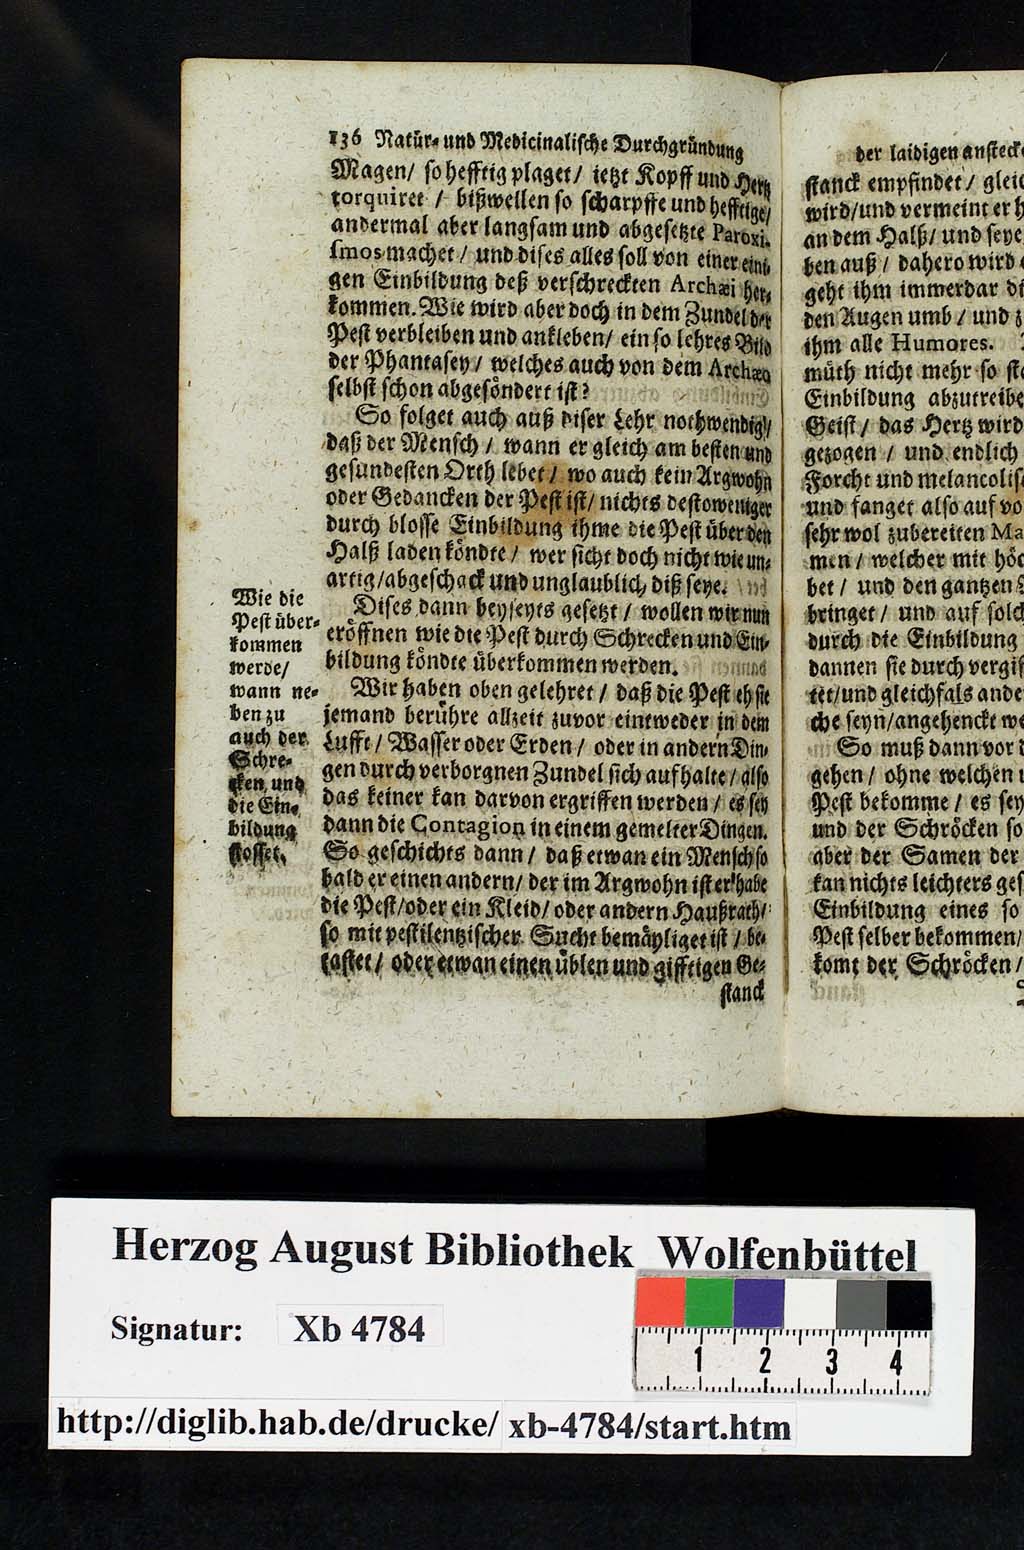 136 Natür- und Medicinalische Durchgründung
Magen/ so hefftig plaget/ ietzt Kopff und Hertz
torquiret / bißwellen so scharpffe und hefftige/
andermal aber langsam und abgesetzte Paroxi-
smos machet / und dises alles soll von einer eini-
gen Einbildung deß verschreckten Archæi her-
kommen. Wie wird aber doch in dem Zundel der
Pest verbleiben und ankleben/ ein so lehres Bild
der Phantasey/ welches auch von dem Archæo
selbst schon abgesöndert ist?
So folget auch auß diser Lehr nothwendig/
daß der Mensch / wann er gleich am besten und
gesundesten Orth lebet/ wo auch kein Argwohn
oder Gedancken der Pest ist/ nichts destoweniger
durch blosse Einbildung ihme die Pest über den
Halß laden köndte/ wer sicht doch nicht wie un-
artig/abgeschack und unglaublich diß seye.
Dises dann beyseyts gesetzt / wollen wir nun
eröffnen wie die Pest durch Schrecken und Ein-
bildung köndte überkommen werden.
Wir haben oben gelehret / daß die Pest eh sie
jemand berühre allzeit zuvor eintweder in dem
Lufft/ Wasser oder Erden/ oder in andern Din-
gen durch verborgnen Zundel sich aufhalte/ also
das keiner kan darvon ergriffen werden/ es sey
dann die Contagion in einem gemelter Dingen.
So geschichts dann / daß etwan ein Mensch so
bald er einen andern/ der im Argwohn ist er habe
die Pest/oder ein Kleid/ oder andern Haußrath/
so mit pestilentzischer Sucht bemäyliget ist / be-
tastet/ oder etwan einen üblen und gifftigen Ge-
stanck
Wie die
Pest über-
kommen
werde/
wann ne-
ben zu
auch der
Schre-
cken und
die Ein-
bildung
stosset.
der laidigen anstecke
stanck empfindet/ gleic
wird/und vermeint er h
an dem Halß/ und seye
ben auß / dahero wird
geht ihm immerdar di
den Augen umb/ und z
ihm alle Humores.
müth nicht mehr so sta
Einbildung abzutreibe
Geist/ das Hertz wird
gezogen / und endlich
Forcht und melancolis
und fanget also auf vo
sehr wol zubereiten Ma
men/ welcher mit höc
bet/ und den gantzen
bringet/ und auf solch
durch die Einbildung
dannen sie durch vergif
tet/und gleichfals ande
che seyn/angehenckt we
So muß dann vor d
gehen/ ohne welchen
Pest bekomme/ es sey
und der Schröcken so
aber der Samen der
kan nichts leichters ges
Einbildung eines so
Pest selber bekommen/
komt der Schröcken/
Herzog August Bibliothek Wolfenbüttel
Signatur: Xb 4784
1 2 3 4
http://diglib.hab.de/drucke/ xb-4784/start.htm